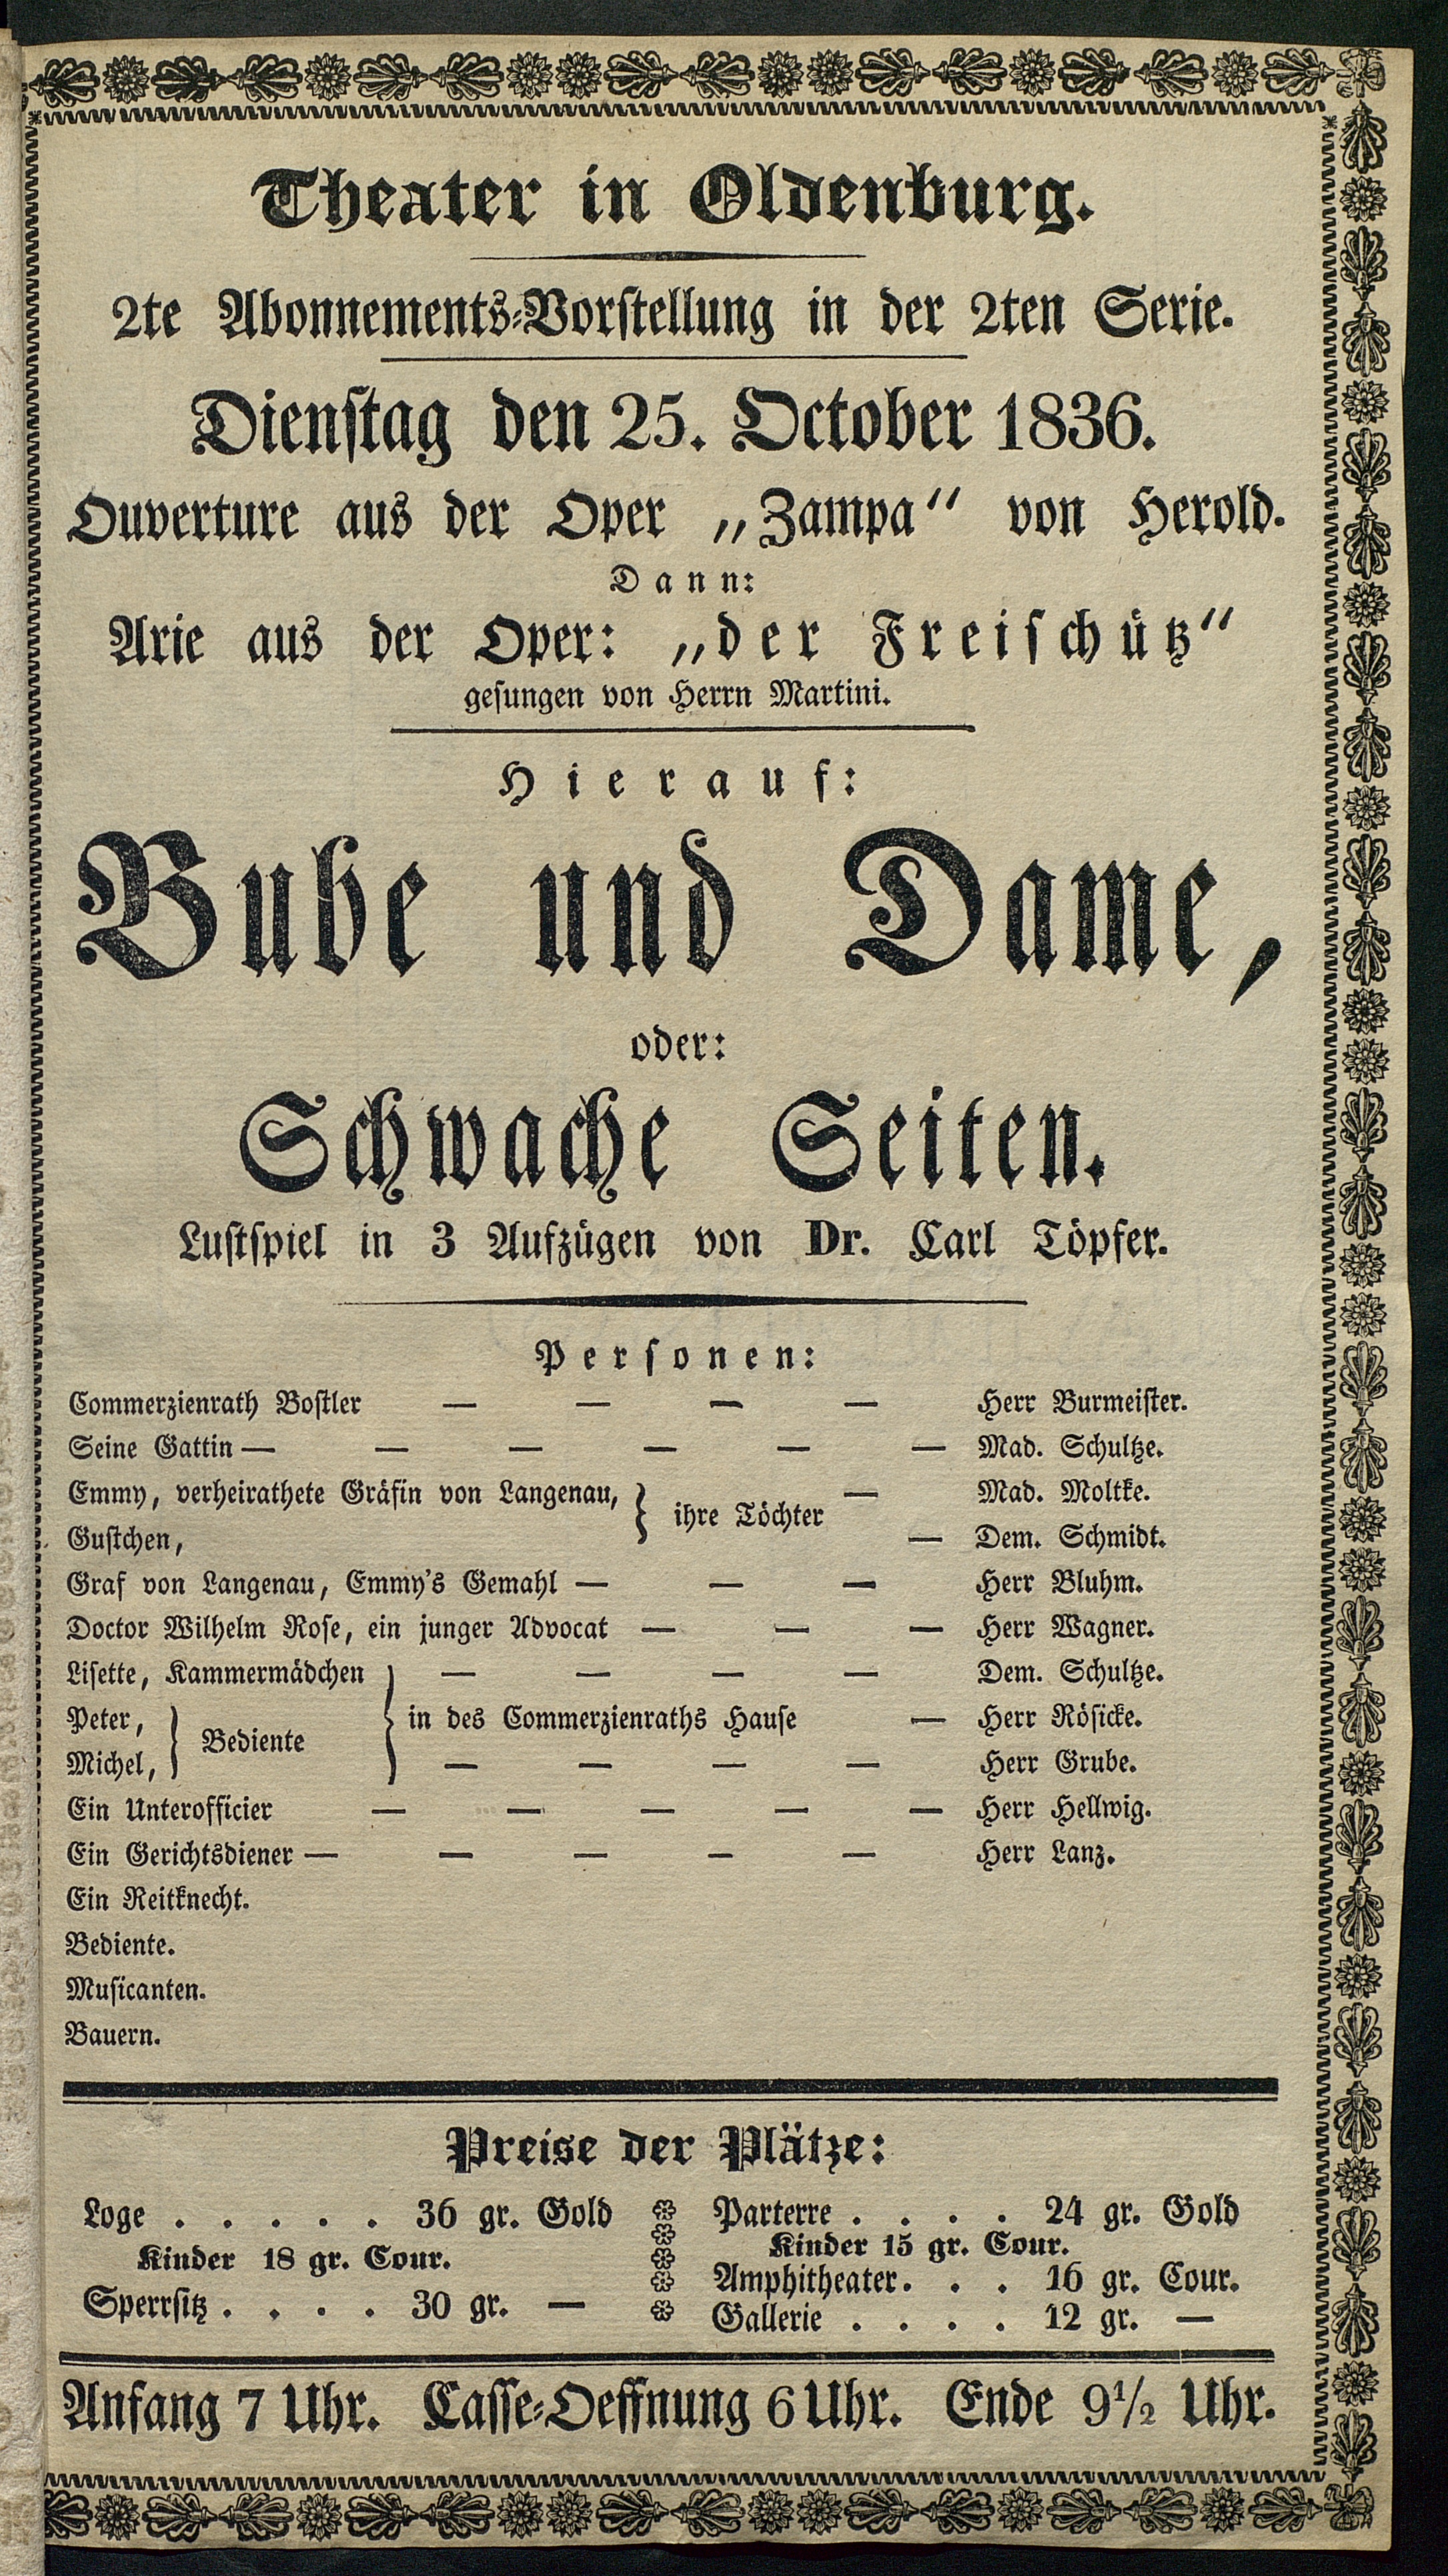 Theater in Oldenburg.
2te Abonnements-Vorstellung in der 2ten Serie.
Dienstag den 25. October 1836.
Ouverture aus der Oper „Zampa“ von Herold.
Dann:
Arie aus der Oper: „der Freischütz“
gesungen von Herrn Martini.
Hierauf:
Bube und Dame,
oder:
Schwache Seiten.
Lustspiel in 3 Aufzügen von Dr. Carl Töpfer.
Personen:
Commerzienrath Bostler — — — — Herr Burmeister.
Seine Gattin — — — — — — Mad. Schultze.
Emmy, verheirathete Gräfin von Langenau, } ihre Töchter — Mad. Moltke.
Gustchen, — Dem. Schmidt.
Graf von Langenau, Emmy's Gemahl — — — Herr Bluhm.
Doctor Wilhelm Rose, ein junger Advocat — — — Herr Wagner.
Lisette, Kammermädchen — — — — Dem. Schultze.
Peter, } Bediente } in des Commerzienraths Hause — Herr Rösicke.
Michel, — — — — Herr Grube.
Ein Unterofficier — — — — — Herr Hellwig.
Ein Gerichtsdiener — — — — — Herr Lanz.
Ein Reitknecht.
Bediente.
Musicanten.
Bauern.
Preise der Plätze:
Loge . . . . . 36 gr. Gold
Kinder 18 gr. Cour.
Sperrsitz . . . . 30 gr. —
Parterre . . . . 24 gr. Gold
Kinder 15 gr. Cour.
Amphitheater. . . 16 gr. Cour.
Gallerie . . . . 12 gr. —
Anfang 7 Uhr. Casse-Oeffnung 6 Uhr. Ende 9½ Uhr.